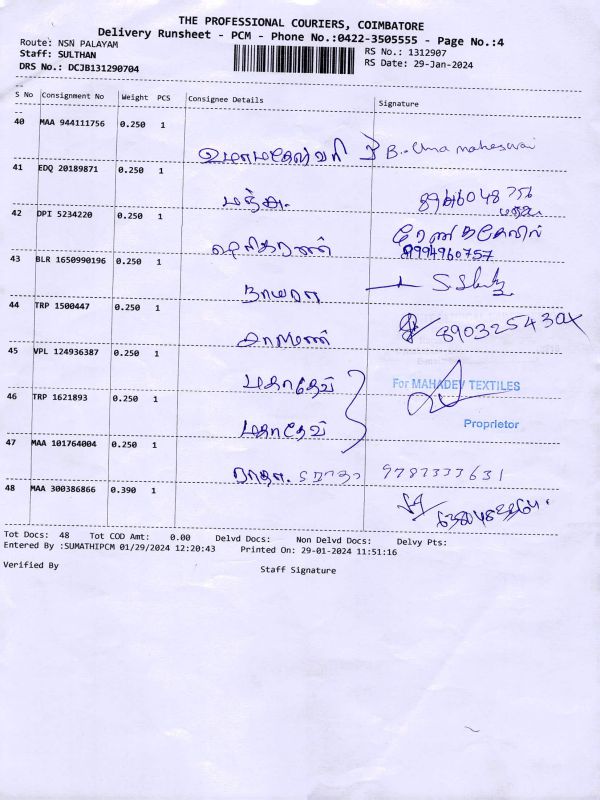 THE PROFESSIONAL COURIERS, COIMBATORE
Delivery Runsheet - PCM - Phone No.:0422-3505555 - Page No.:4
Route: NSN PALAYAM
RS No.: 1312907
Staff: SULTHAN
RS Date: 29-Jan-2024
DRS No.: DCJB131290704
S No Consignment No Weight PCS Consignee Details Signature
40 MAA 944111756 0.250 1
உமாமகேஸ்வரி B. Uma maheswari
41 EDQ 20189871 0.250 1
மஞ்சு.
42 DPI 5234220 0.250 1
8994960757
43 BLR 1650990196 0.250 1
44 TRP 1500447 0.250 1
45 VPL 124936387 0.250 1
மகாதேவ்
For MAHADEV TEXTILES
46 TRP 1621893 0.250 1
மகாதேவ்
Proprietor
47 MAA 101764004 0.250 1
9787333631
48 MAA 300386866 0.390 1
Tot Docs: 48 Tot COD Amt: 0.00 Delvd Docs: Non Delvd Docs: Delvy Pts:
Entered By :SUMATHIPCM 01/29/2024 12:20:43 Printed On: 29-01-2024 11:51:16
Verified By
Staff Signature